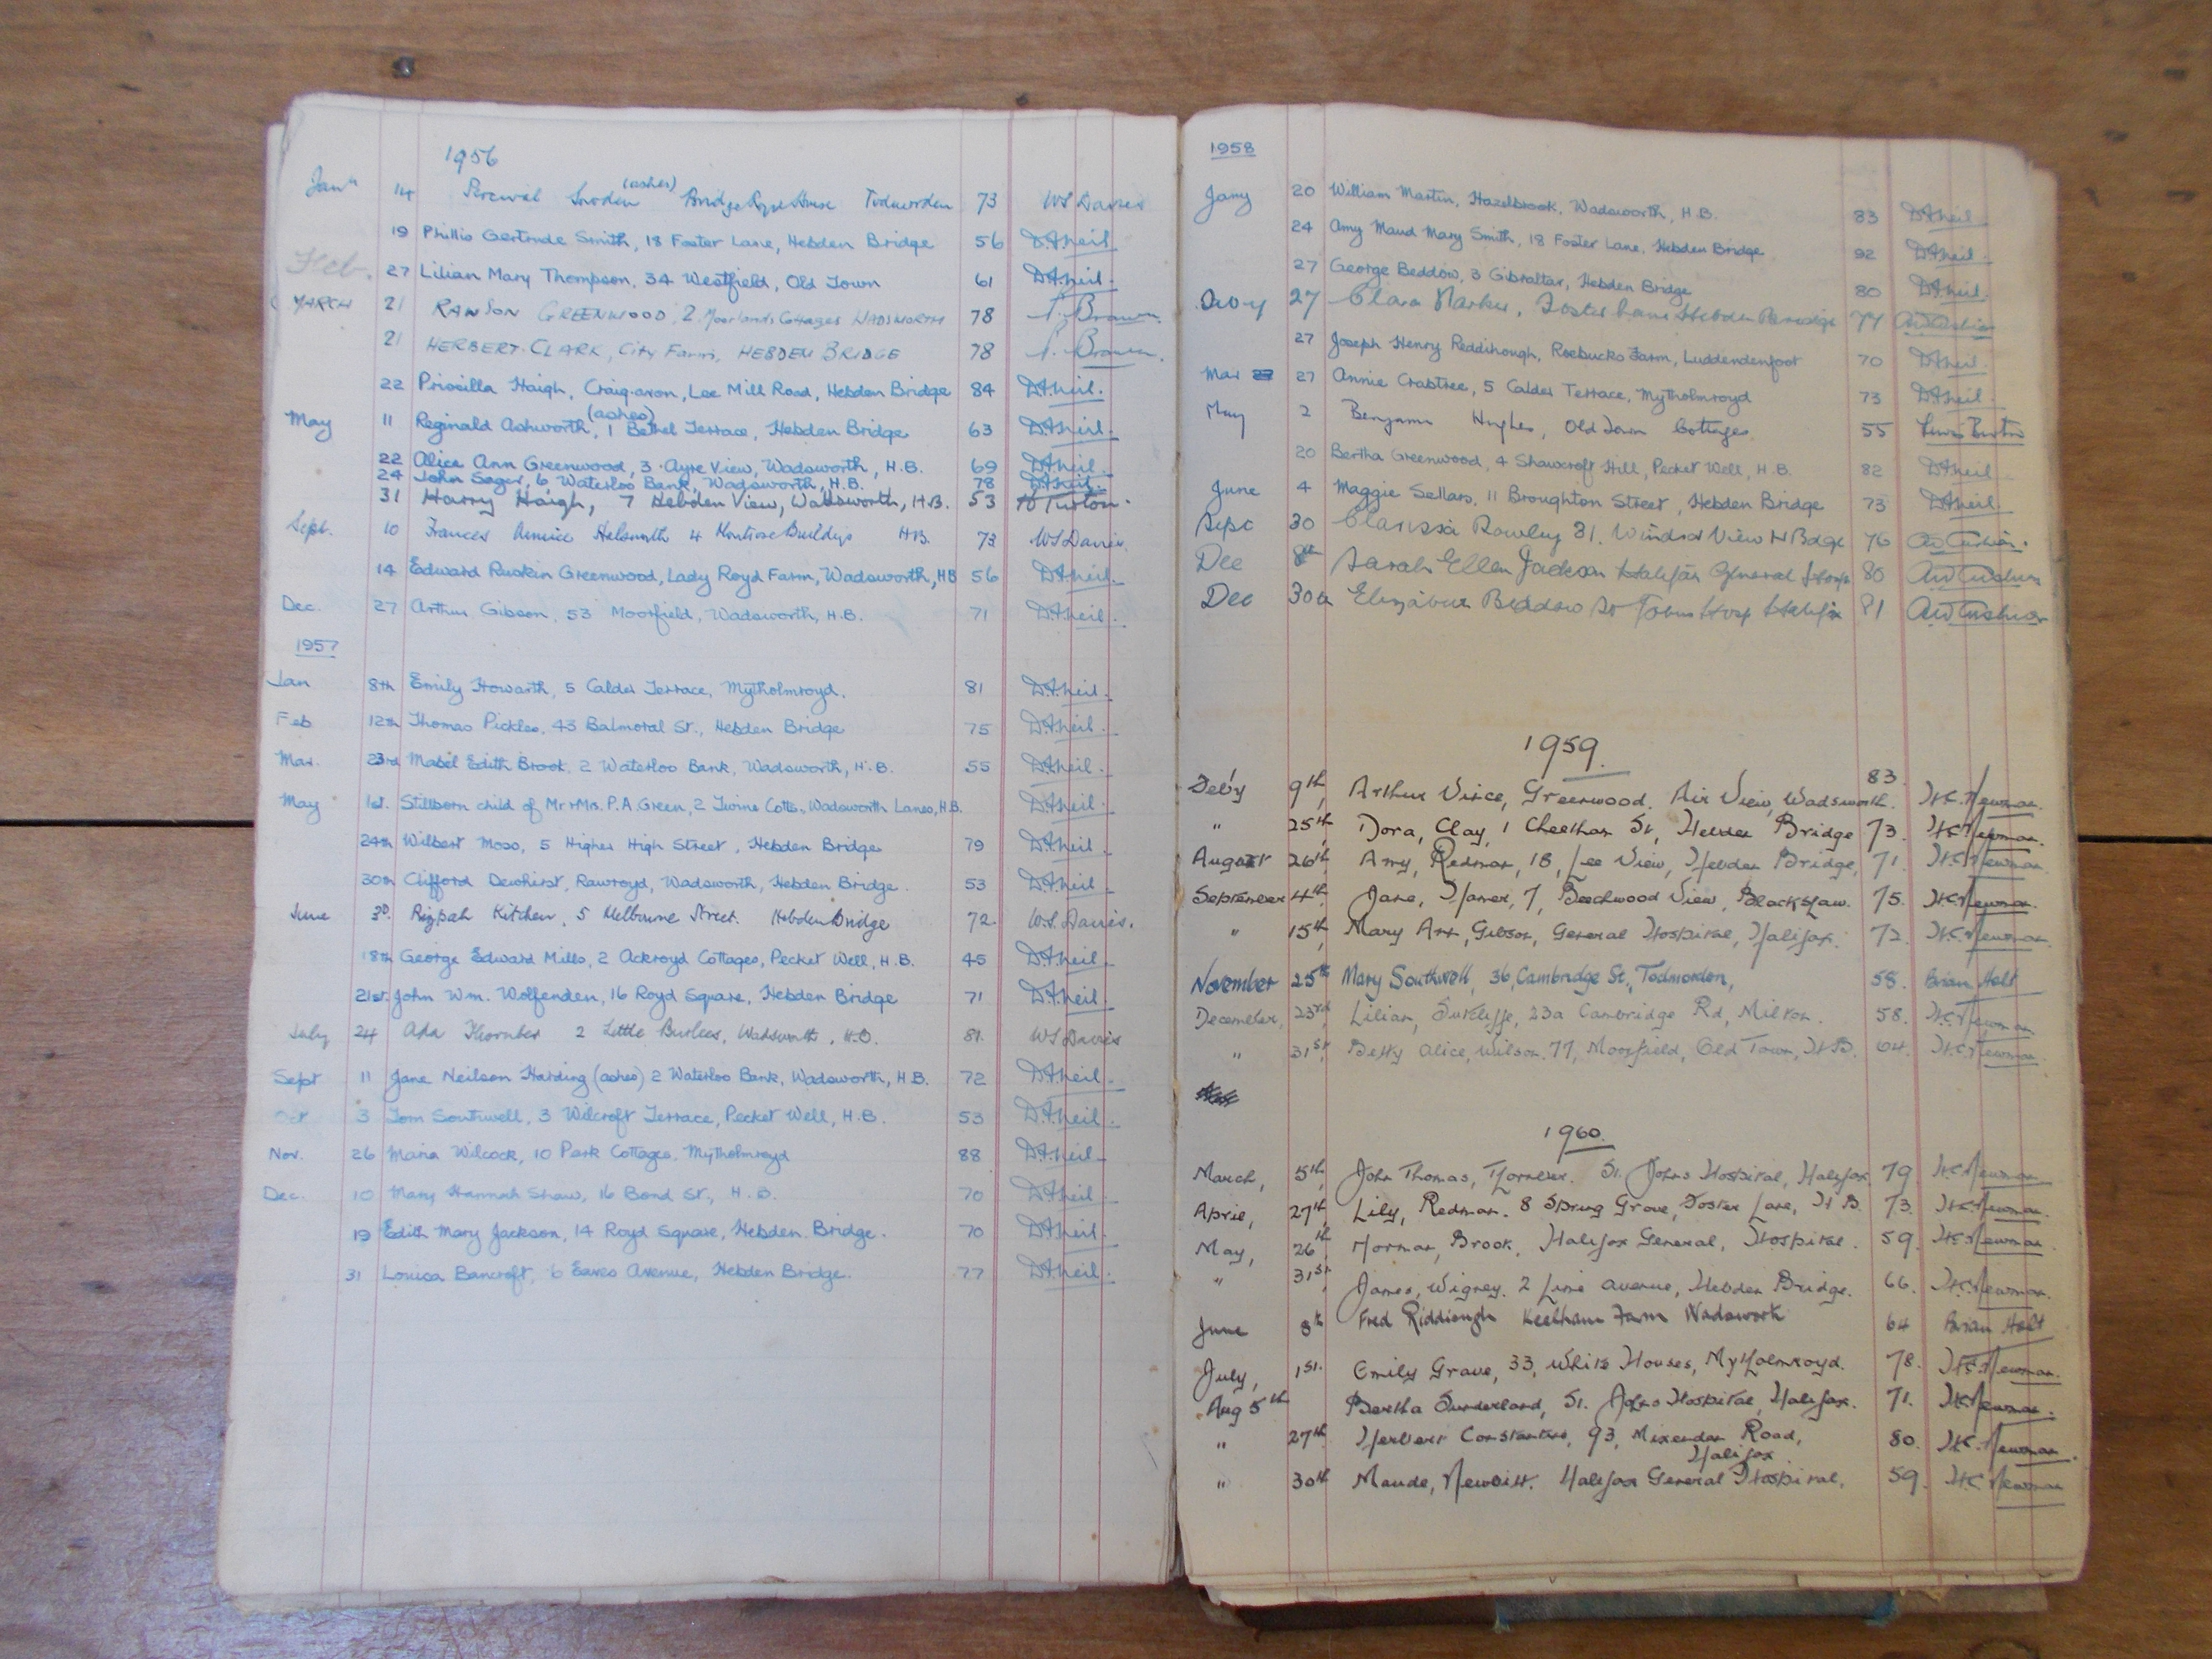 1956
Jany 14 Percival (ashes) Bridge House Todmorden 73 WS Davies
19 Phillis Gertrude Smith, 18 Foster Lane, Hebden Bridge 56 D.H.Neil.
Feb. 27 Lilian Mary Thompson, 34 Westfield, Old Town 61 D.H.Neil.
MARCH 21 RAWSON GREENWOOD, 2 Moorlands Cottages WADSWORTH 78 Brown.
21 HERBERT CLARK, City Farm, HEBDEN BRIDGE 78 Brown.
22 Priscilla Haigh, Craig-avon, Lee Mill Road, Hebden Bridge 84 D.H.Neil.
May 11 Reginald Ashworth, (ashes) 1 Bethel Terrace, Hebden Bridge 63 D.H.Neil.
22 Alice Ann Greenwood, 3 Ayre View, Wadsworth, H.B. 69 D.H.Neil.
24 John Sager, 6 Waterloo Bank, Wadsworth, H.B. 78 D.H.Neil.
31 Harry Haigh, 7 Hebden View, Wadsworth, H.B. 53 Turton.
Sept. 10 Frances Annice 4 Montrose Buildings H.B. 73 WS Davies.
14 Edward Ruskin Greenwood, Lady Royd Farm, Wadsworth, HB 56 D.H.Neil.
Dec. 27 Arthur Gibson, 53 Moorfield, Wadsworth, H.B. 71 D.H.Neil.
1957
Jan 8th Emily Howarth, 5 Calder Terrace, Mytholmroyd. 81 D.H.Neil.
Feb 12th Thomas Pickles, 43 Balmoral St., Hebden Bridge 75 D.H.Neil.
Mar. 23rd Mabel Edith Brook, 2 Waterloo Bank, Wadsworth, H.B. 55 D.H.Neil.
May 1st. Stillborn child of Mr & Mrs. P.A. Green, 2 Twine Cotts., Wadsworth Lanes, H.B. D.H.Neil.
24th Wilbert Moss, 5 Higher High Street, Hebden Bridge 79 D.H.Neil.
30th Clifford Dewhirst, Rawroyd, Wadsworth, Hebden Bridge. 53 D.H.Neil.
June 3d. Rizpah Kitchen, 5 Melbourne Street. Hebden Bridge 72. W.S. Davies.
18th George Edward Mills, 2 Ackroyd Cottages, Pecket Well, H.B. 45 D.H.Neil.
21st. John Wm. Wolfenden, 16 Royd Square, Hebden Bridge 71 D.H.Neil.
July 24 Ada Thornber 2 Little Burlees, Wadsworth, H.B. 81. WS Davies
Sept 11 Jane Neilson Harding (ashes) 2 Waterloo Bank, Wadsworth, H.B. 72 D.H.Neil.
Oct 3 Tom Southwell, 3 Wilcroft Terrace, Pecket Well, H.B. 53 D.H.Neil.
Nov. 26 Maria Wilcock, 10 Park Cottages, Mytholmroyd 88 D.H.Neil.
Dec. 10 Mary Hannah Shaw, 16 Bond St., H.B. 70 D.H.Neil.
19 Edith Mary Jackson, 14 Royd Square, Hebden Bridge. 70 D.H.Neil.
31 Louisa Bancroft, 6 Eaves Avenue, Hebden Bridge. 77 D.H.Neil.
1958
Jany 20 William Martin, Hazelbrook, Wadsworth, H.B. 83 D.H.Neil.
24 Amy Maud Mary Smith, 18 Foster Lane, Hebden Bridge 92 D.H.Neil.
27 George Beddow, 3 Gibraltar, Hebden Bridge 80 D.H.Neil.
27 Clara Foster Lane Hebden Bridge 77 AW Cushion
27 Joseph Henry Reddihough, Roebucks Farm, Luddendenfoot 70 D.H.Neil.
Mar 27 Annie Crabtree, 5 Calder Terrace, Mytholmroyd 73 D.H.Neil.
May 2 Benjamin Hughes, Old Town Cottages 55 Lewis Burton
20 Bertha Greenwood, 4 Shawcroft Hill, Pecket Well, H.B. 82 D.H.Neil
June 4 Maggie Sellars, 11 Broughton Street, Hebden Bridge 73 D.H.Neil.
Sept 30 Clarissa Rowley 31. Windsor View H Bdge 76 AW Cushion.
Dec 8th Sarah Ellen Jackson Halifax General Hosp 80 AW Cushion
Dec 30th Elizabeth Beddow St Johns Hosp Halifax 81 AW Cushion
1959.
9th, Arthur Vince, Greenwood. Air View, Wadsworth. 83. H.C. Newman.
" 25th, Dora, Clay, 1 Cheetham St, Hebden Bridge 73. H.C. Newman.
August 26th, Amy, Redman, 18, Lee View, Hebden Bridge, 71. H.C. Newman.
September 4th, Jane, Hamer, 7, Beechwood View, Blackshaw. 75. H.C. Newman.
" 15th, Mary Ann, Gibson, General Hospital, Halifax. 72. H.C. Newman.
November 25th Mary Southwell, 36 Cambridge St., Todmorden, 58. Brian Holt
December, 23rd, Lilian, Sutcliffe, 23a Cambridge Rd, Milton. 58. H.C. Newman
" 31st, Betty Alice, Wilson. 77, Moorfield, Old Town, H.B. 64. H.C. Newman.
1960.
March, 5th, John Thomas, Thornber. St. Johns Hospital, Halifax. 79. H.C. Newman.
April, 27th, Lily, Redman. 8 Spring Grove, Foster Lane, H.B. 73. H.C. Newman.
May, 26th Norman, Brook, Halifax General, Hospital. 59. H.C. Newman.
" 31st, James, Wigney. 2 Lime Avenue, Hebden Bridge. 66. H.C. Newman.
June 8th Fred Riddiough Keelham Farm Wadsworth 64 Brian Holt
July, 1st. Emily Grave, 33, White Houses, Mytholmroyd. 78. H.C. Newman.
Aug 5th Bertha Sunderland, St. Johns Hospital, Halifax. 71. H.C. Newman.
" 27th Herbert Constantine, 93, Mixenden Road, Halifax 80. H.C. Newman.
" 30th Maude, Newbitt. Halifax General Hospital, 59. H.C. Newman